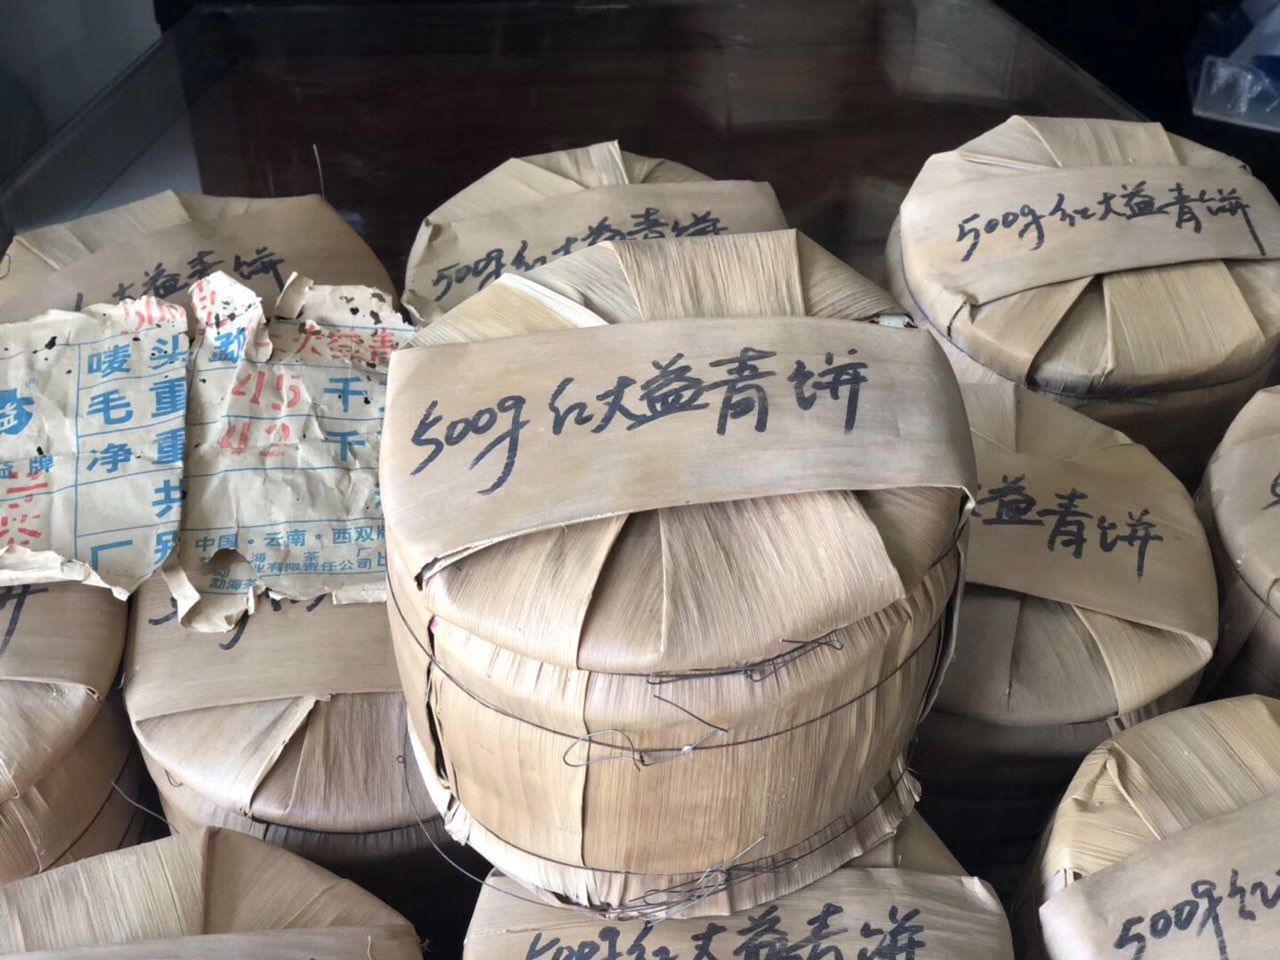 大益青饼
500g红大益青饼
500g红大益青饼
唛头
毛重 45 千
净重 42 千
共
厂
中国·云南·西双
海茶厂
业有限责任公司
勐海茶
牌
500g红大益青饼
益青饼
500g红大益青饼
500g红